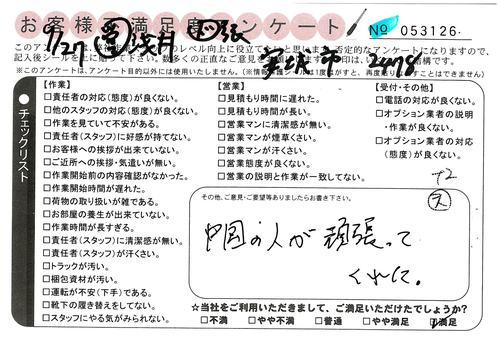 お客様満足度アンケート
№ 053126
9/27
2478
のレベル向上に役立て
記入後シールを
※このアンケートは、アンケート目的以外には使用いたしません。
チェックリスト
【作業】
□責任者の対応(態度)が良くない。
□他のスタッフの対応(態度)が良くない。
□作業を見ていて不安がある。
□責任者(スタッフ)に好感が持てない。
□お客様への挨拶が出来ていない。
□ご近所への挨拶・気遣いが無い。
□作業開始前の内容確認がなかった。
□作業開始時間が遅れた。
□荷物の取り扱いが雑である。
□お部屋の養生が出来ていない。
□作業時間が長すぎる。
□責任者(スタッフ)に清潔感が無い。
□責任者(スタッフ)が汗くさい。
□トラックが汚い。
□梱包資材が汚い。
□運転が不安(下手)である。
□靴下の履き替えをしてない。
□スタッフにやる気がみられない。
【営業】
□見積もり時間に遅れた。
□見積もり時間が長い。
□営業マンに清潔感が無い。
□営業マンが煙草くさい。
□営業マンが汗くさい。
□営業態度が良くない。
□営業の説明と作業が一致してない。
【受付・その他】
□電話の対応が良くない。
□オプション業者の説明
・作業が良くない。
□オプション業者の対応
(態度)が良くない。
その他、ご意見・ご要望等ありましたらお書き下さい。
中国の人が頑張って
くれた。
☆当社をご利用いただきまして、ご満足いただけたでしょうか?
□不満 □やや不満 □普通 □やや満足 □満足